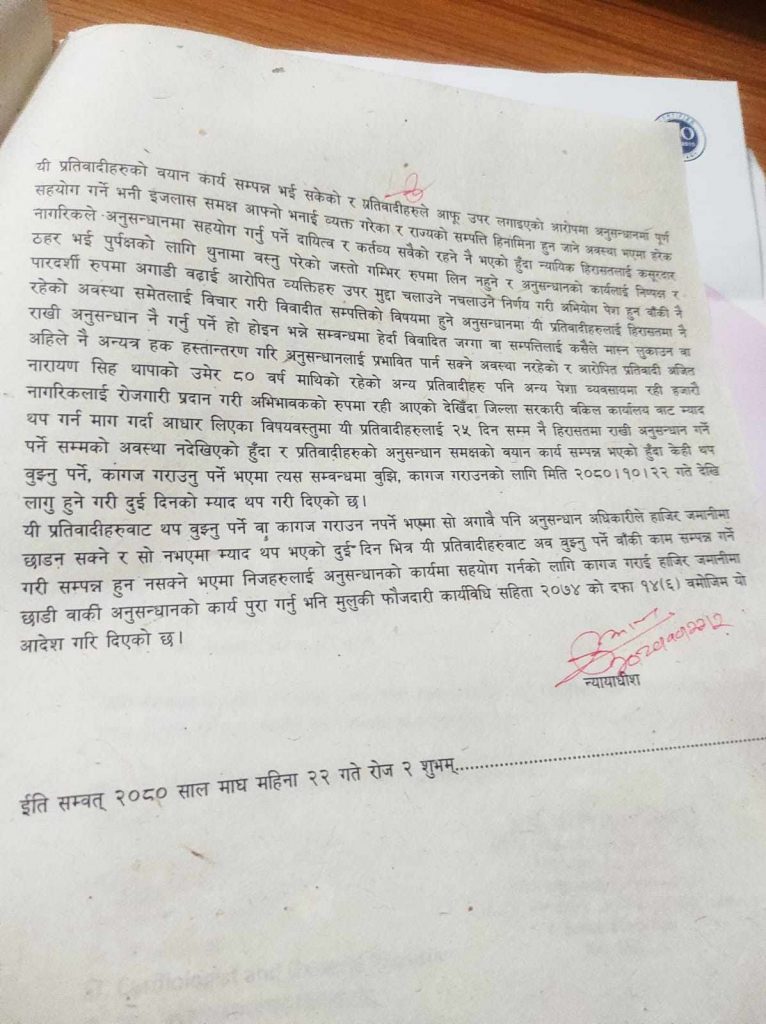 यी प्रतिवादीहरुको वयान कार्य सम्पन्न भई सकेको र प्रतिवादीहरुले आफू उपर लगाइएको आरोपमा अनुसन्धानमा पूर्ण
सहयोग गर्ने भनी इजलास समक्ष आफ्नो भनाई व्यक्त गरेका र राज्यको सम्पत्ति हिनामिना हुन जाने अवस्था भएमा हरेक
नागरिकले अनुसन्धानमा सहयोग गर्नु पर्ने दायित्व र कर्तव्य सवैको रहने नै भएको हुँदा न्यायिक हिरासतलाई कसूरदार
ठहर भई पुर्पक्षको लागि थुनामा वस्नु परेको जस्तो गम्भिर रुपमा लिन नहुने र अनुसन्धानको कार्यलाई निष्पक्ष र
पारदर्शी रुपमा अगाडी वढ़ाई आरोपित व्यक्तिहरु उपर मुद्दा चलाउने नचलाउने निर्णय गरी अभियोग पेश हुन बाँकी नै
रहेको अवस्था समेतलाई विचार गरी विवादीत सम्पत्तिको विषयमा हुने अनुसन्धानमा यी प्रतिवादीहरुलाई हिरासतमा नै
राखी अनुसन्धान नै गर्नु पर्ने हो होइन भन्ने सम्वन्धमा हेर्दा विवादित जग्गा वा सम्पत्तिलाई कसैले मास्न लुकाउन वा
अहिले नै अन्यत्र हक हस्तान्तरण गरि अनुसन्धानलाई प्रभावित पार्न सक्ने अवस्था नरहेको र आरोपित प्रतिवादी अजित
नारायण सिह थापाको उमेर ८० वर्ष माथिको रहेको अन्य प्रतिवादीहरु पनि अन्य पेशा व्यवसायमा रही हजारौ
नागरिकलाई रोजगारी प्रदान गरी अभिभावकको रुपमा रही आएको देखिँदा जिल्ला सरकारी वकिल कार्यालय वाट म्याद
थप गर्न माग गर्दा आधार लिएका विषयवस्तुमा यी प्रतिवादीहरुलाई २५ दिन सम्म नै हिरासतमा राखी अनुसन्धान गर्ने
पर्ने सम्मको अवस्था नदेखिएको हुँदा र प्रतिवादीहरुको अनुसन्धान समक्षको वयान कार्य सम्पन्न भएको हुँदा केही थप
वुझ्नु पर्ने, कागज गराउनु पर्ने भएमा त्यस सम्वन्धमा बुझि, कागज गराउनको लागि मिति २०८०।१०।२२ गते देखि
लागु हुने गरी दुई दिनको म्याद थप गरी दिएको छ।
यी प्रतिवादीहरुवाट थप वुझ्नु पर्ने वा कागज गराउन नपर्ने भएमा सो अगावै पनि अनुसन्धान अधिकारीले हाजिर जमानीमा
छाडन सक्ने र सो नभएमा म्याद थप भएको दुई दिन भित्र यी प्रतिवादीहरुवाट अव वुझ्नु पर्ने वाँकी काम सम्पन्न गर्ने
गरी सम्पन्न हुन नसक्ने भएमा निजहरुलाई अनुसन्धानको कार्यमा सहयोग गर्नको लागि कागज गराई हाजिर जमानीमा
छाडी वाकी अनुसन्धानको कार्य पुरा गर्नु भनि मुलुकी फौजदारी कार्यविधि सहिता २०७४ को दफा १४(६) वमोजिम यो
आदेश गरि दिएको छ।
न्यायाधीश
ईति सम्वत् २०८० साल माघ महिना २२ गते रोज २ शुभम्.......................................................